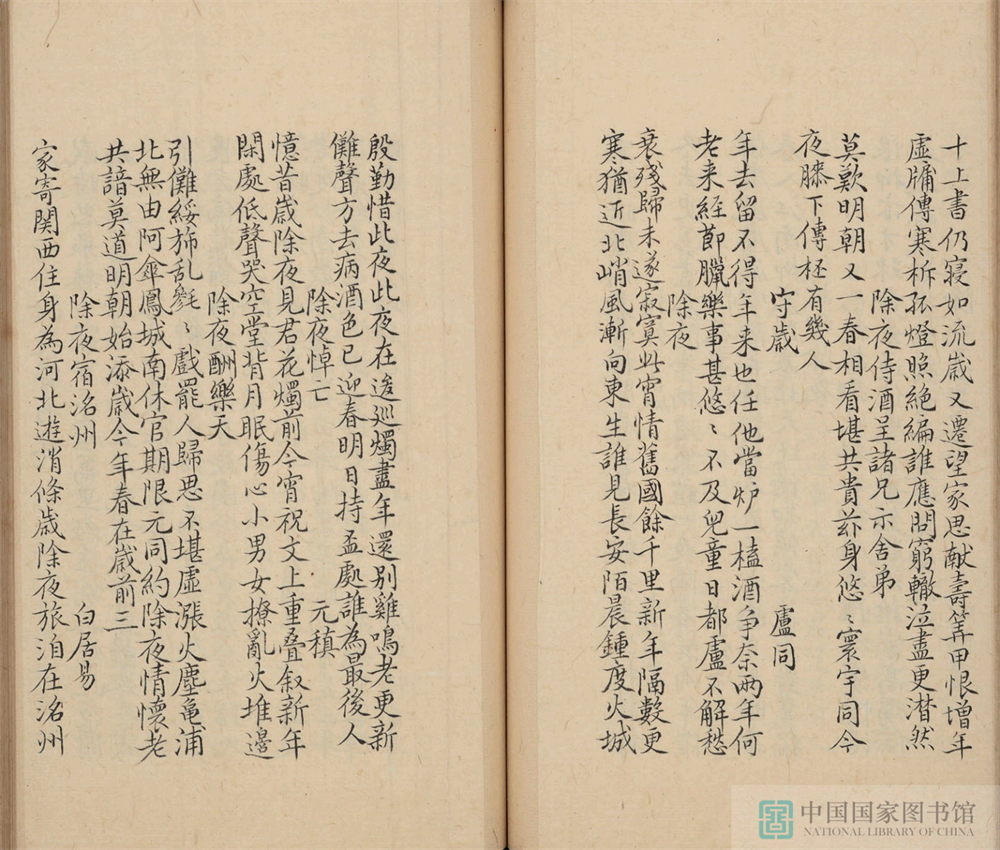 十上書仍寝如流歳又遷望家思献壽筭甲恨增年
虚牖傳寒柝孤燈照絶編誰應問窮轍泣盡更潸然
除夜侍酒呈諸兄示舍弟
莫歎明朝又一春相看堪共貴茲身悠〻寰宇同今
夜膝下傳柸有幾人
守歳 盧同
年去留不得年来也任他當炉一榼酒争奈兩年何
老来經節臘樂事甚悠〻不及兒童日都盧不解愁
除夜
衰残歸未遂寂寞此宵情舊國餘千里新年隔數更
寒猶近北峭風漸向東生誰見長安陌晨鍾度火城
殷勤惜此夜此夜在逡巡燭盡年還别雞鳴老更新
儺聲方去病酒色已迎春明日持盃處誰為最後人
除夜悼亡 元稹
憶昔歳除夜見君花燭前今宵祝文上重叠叙新年
閑處低聲哭空堂背月眠傷心小男女撩亂火堆邊
除夜酬樂天
引儺綏斾乱毿〻戲罷人歸思不堪虚漲火塵亀浦
北無由阿傘鳳城南休官期限元同約除夜情懷老
共諳莫道明朝始添歳今年春在歳前三
除夜宿洺州 白居易
家寄関西住身為河北遊消條歳除夜旅泊在洺州
中国国家图书馆
NATIONAL LIBRARY OF CHINA